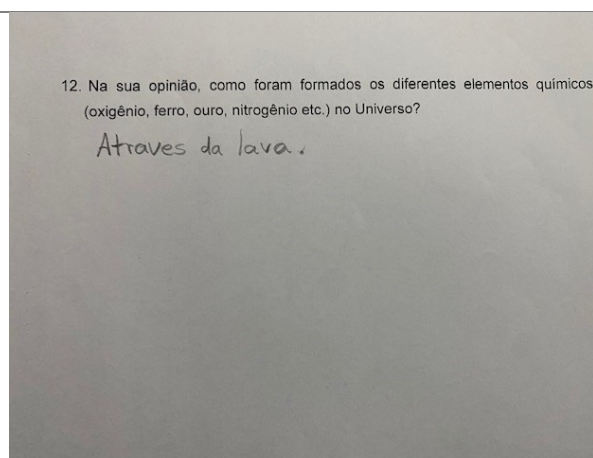 12. Na sua opinião, como foram formados os diferentes elementos químicos
(oxigênio, ferro, ouro, nitrogênio etc.) no Universo?
Atraves da lava.